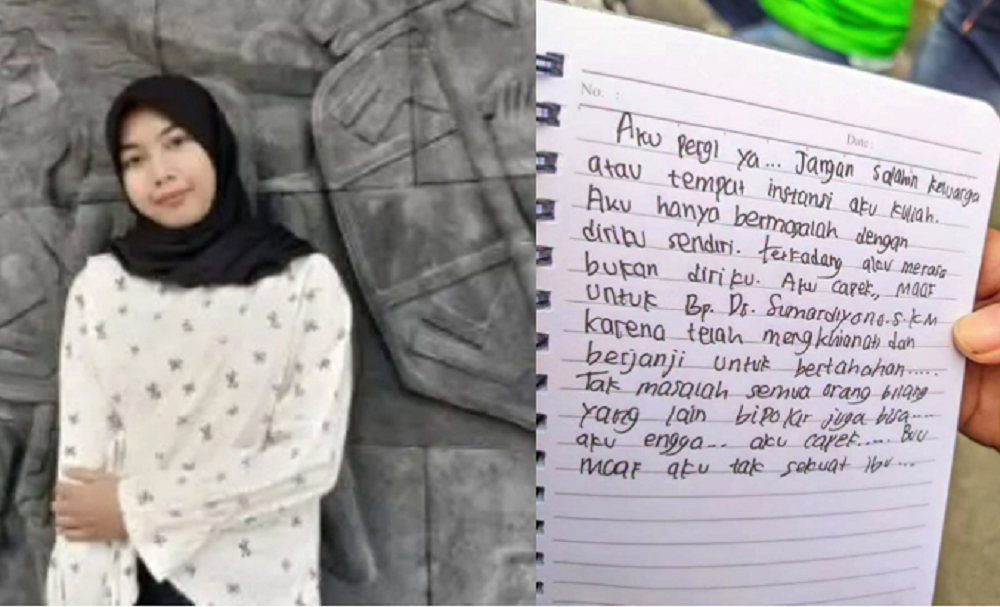 No. :
Date:
Aku pergi ya... Jangan salahin keluarga
atau tempat instansi aku kuliah.
Aku hanya bermasalah dengan
diriku sendiri. terkadang aku merasa
bukan diriku. Aku capek,, maaf
untuk Bp. Dr. Sumardiyono.S.KM
karena telah mengkhianati dan
berjanji untuk bertahahan.....
Tak masalah semua orang bilang
yang lain bipolar juga bisa....
aku engga... aku capek..... Buu
maaf aku tak sekuat ibu...